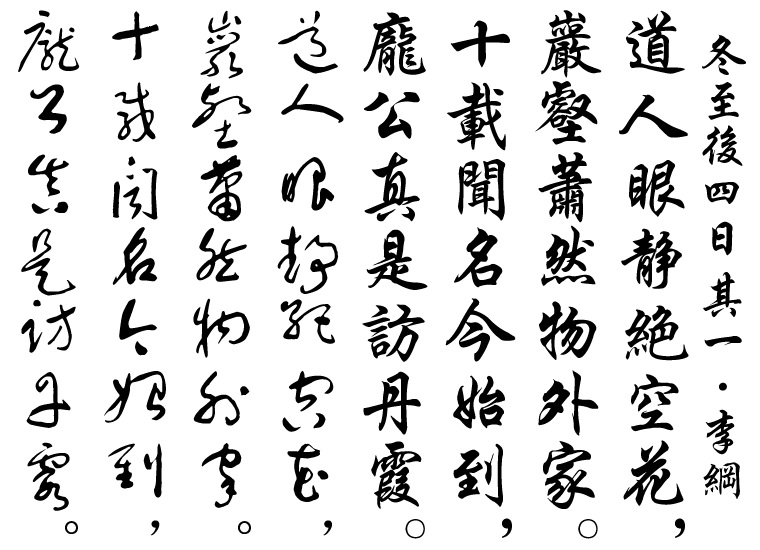 冬至後四日其一・李綱
道人眼静絶空花，
巖壑蕭然物外家。
十載聞名今始到，
龐公真是訪丹霞。
道人眼静絶空花，
巖壑蕭然物外家。
十載聞名今始到，
龐公真是訪丹霞。